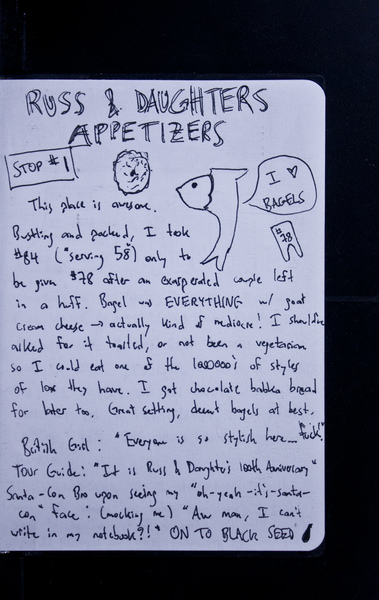 RUSS & DAUGHTERS
APPETIZERS
STOP #1
I ♥
BAGELS
#78
This place is awesome.
Bustling and packed, I took
#84 ("serving 58") only to
be given #78 after an exasperated couple left
in a huff. Bagel was EVERYTHING w/ goat
cream cheese → actually kind of mediocre! I should've
asked for it toasted, or not been a vegetarian
so I could eat one of the 1000000's of styles
of lox they have. I got chocolate babka bread
for later too. Great setting, decent bagels at best.
British Girl: "Everyone is so stylish here... fuck."
Tour Guide: "It is Russ & Daughter's 100th Anniversary"
Santa-Con Bro upon seeing my "oh-yeah-it's-santa-
con" face: (mocking me) "Aw man, I can't
write in my notebook?!" ON TO BLACK SEED